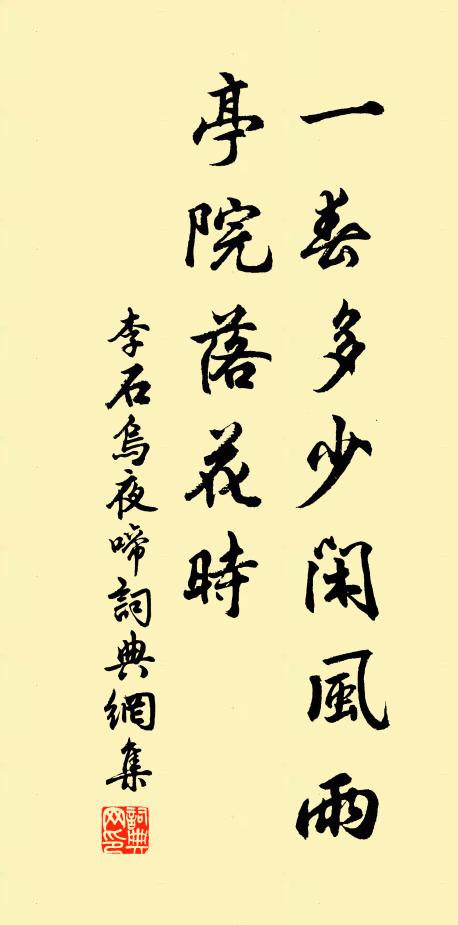 一春多少閑風雨
亭院落花時
李石烏夜啼詞典網集
詞典网印